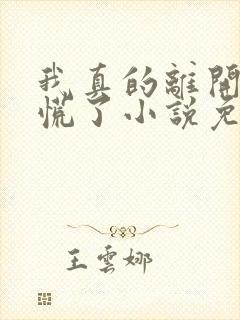 我真的離開
慌了小說免
王雲娜